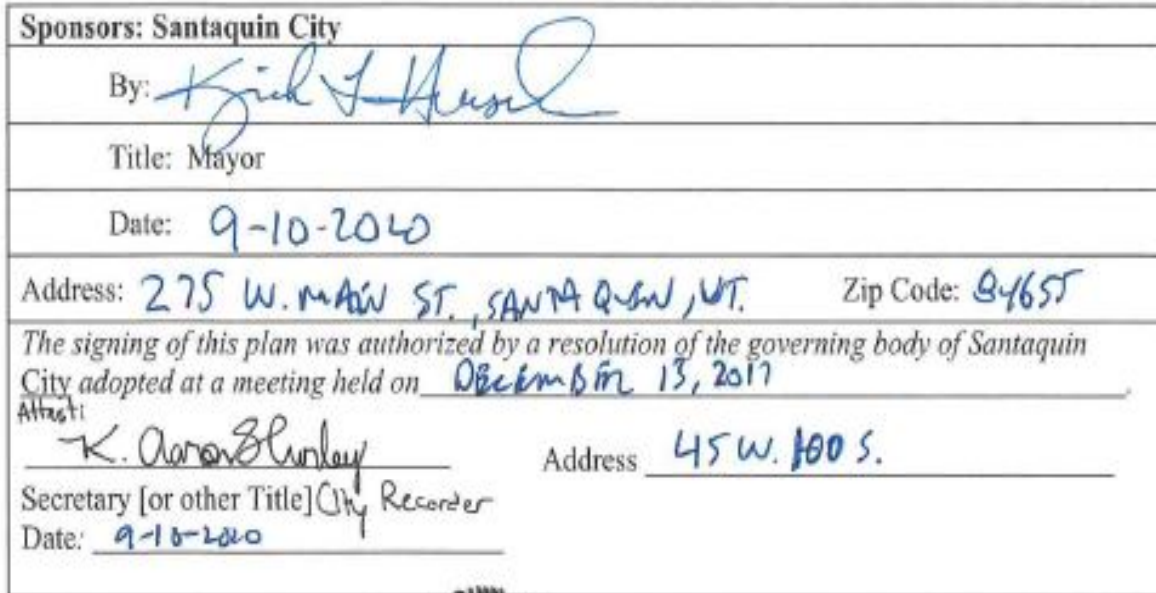 Sponsors: Santaquin City
By: Kirk L Hunsaker
Title: Mayor
Date: 9-10-2020
Address: 275 W. MAIN ST., SANTAQUIN, UT. Zip Code: 84655
The signing of this plan was authorized by a resolution of the governing body of Santaquin
City adopted at a meeting held on DECEMBER 13, 2017.
Attest:
K. Aaron Shirley Address 45 W. 100 S.
Secretary [or other Title] City Recorder
Date: 9-10-2020